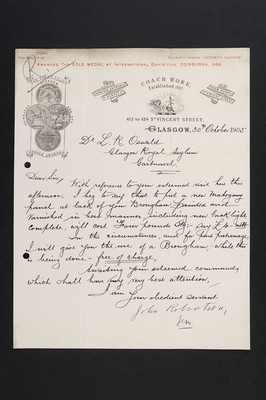 AWARDED THE GOLD MEDAL AT INTERNATIONAL EXHIBITION, EDINBURGH, 1886.
COACH WORK.
Established
412 to 424 ST VINCENT STREET,
GLASGOW, 30th October 1905
Dr L. R. Oswald
Glasgow Royal Asylum
Gartnavel.
Dear Sir,
With reference to your esteemed visit here this
afternoon. I beg to say that to put a new mahogany
panel at back of your Brougham, painted and
varnished in best manner, including new back light
complete, will cost Four pounds say £4
In the circumstances, and for past patronage,
I will give you the use of a Brougham - while this
is being done - free of charge,
Awaiting your esteemed commands
which shall have my very best attention,
I am Your obedient Servant
John Robertson,